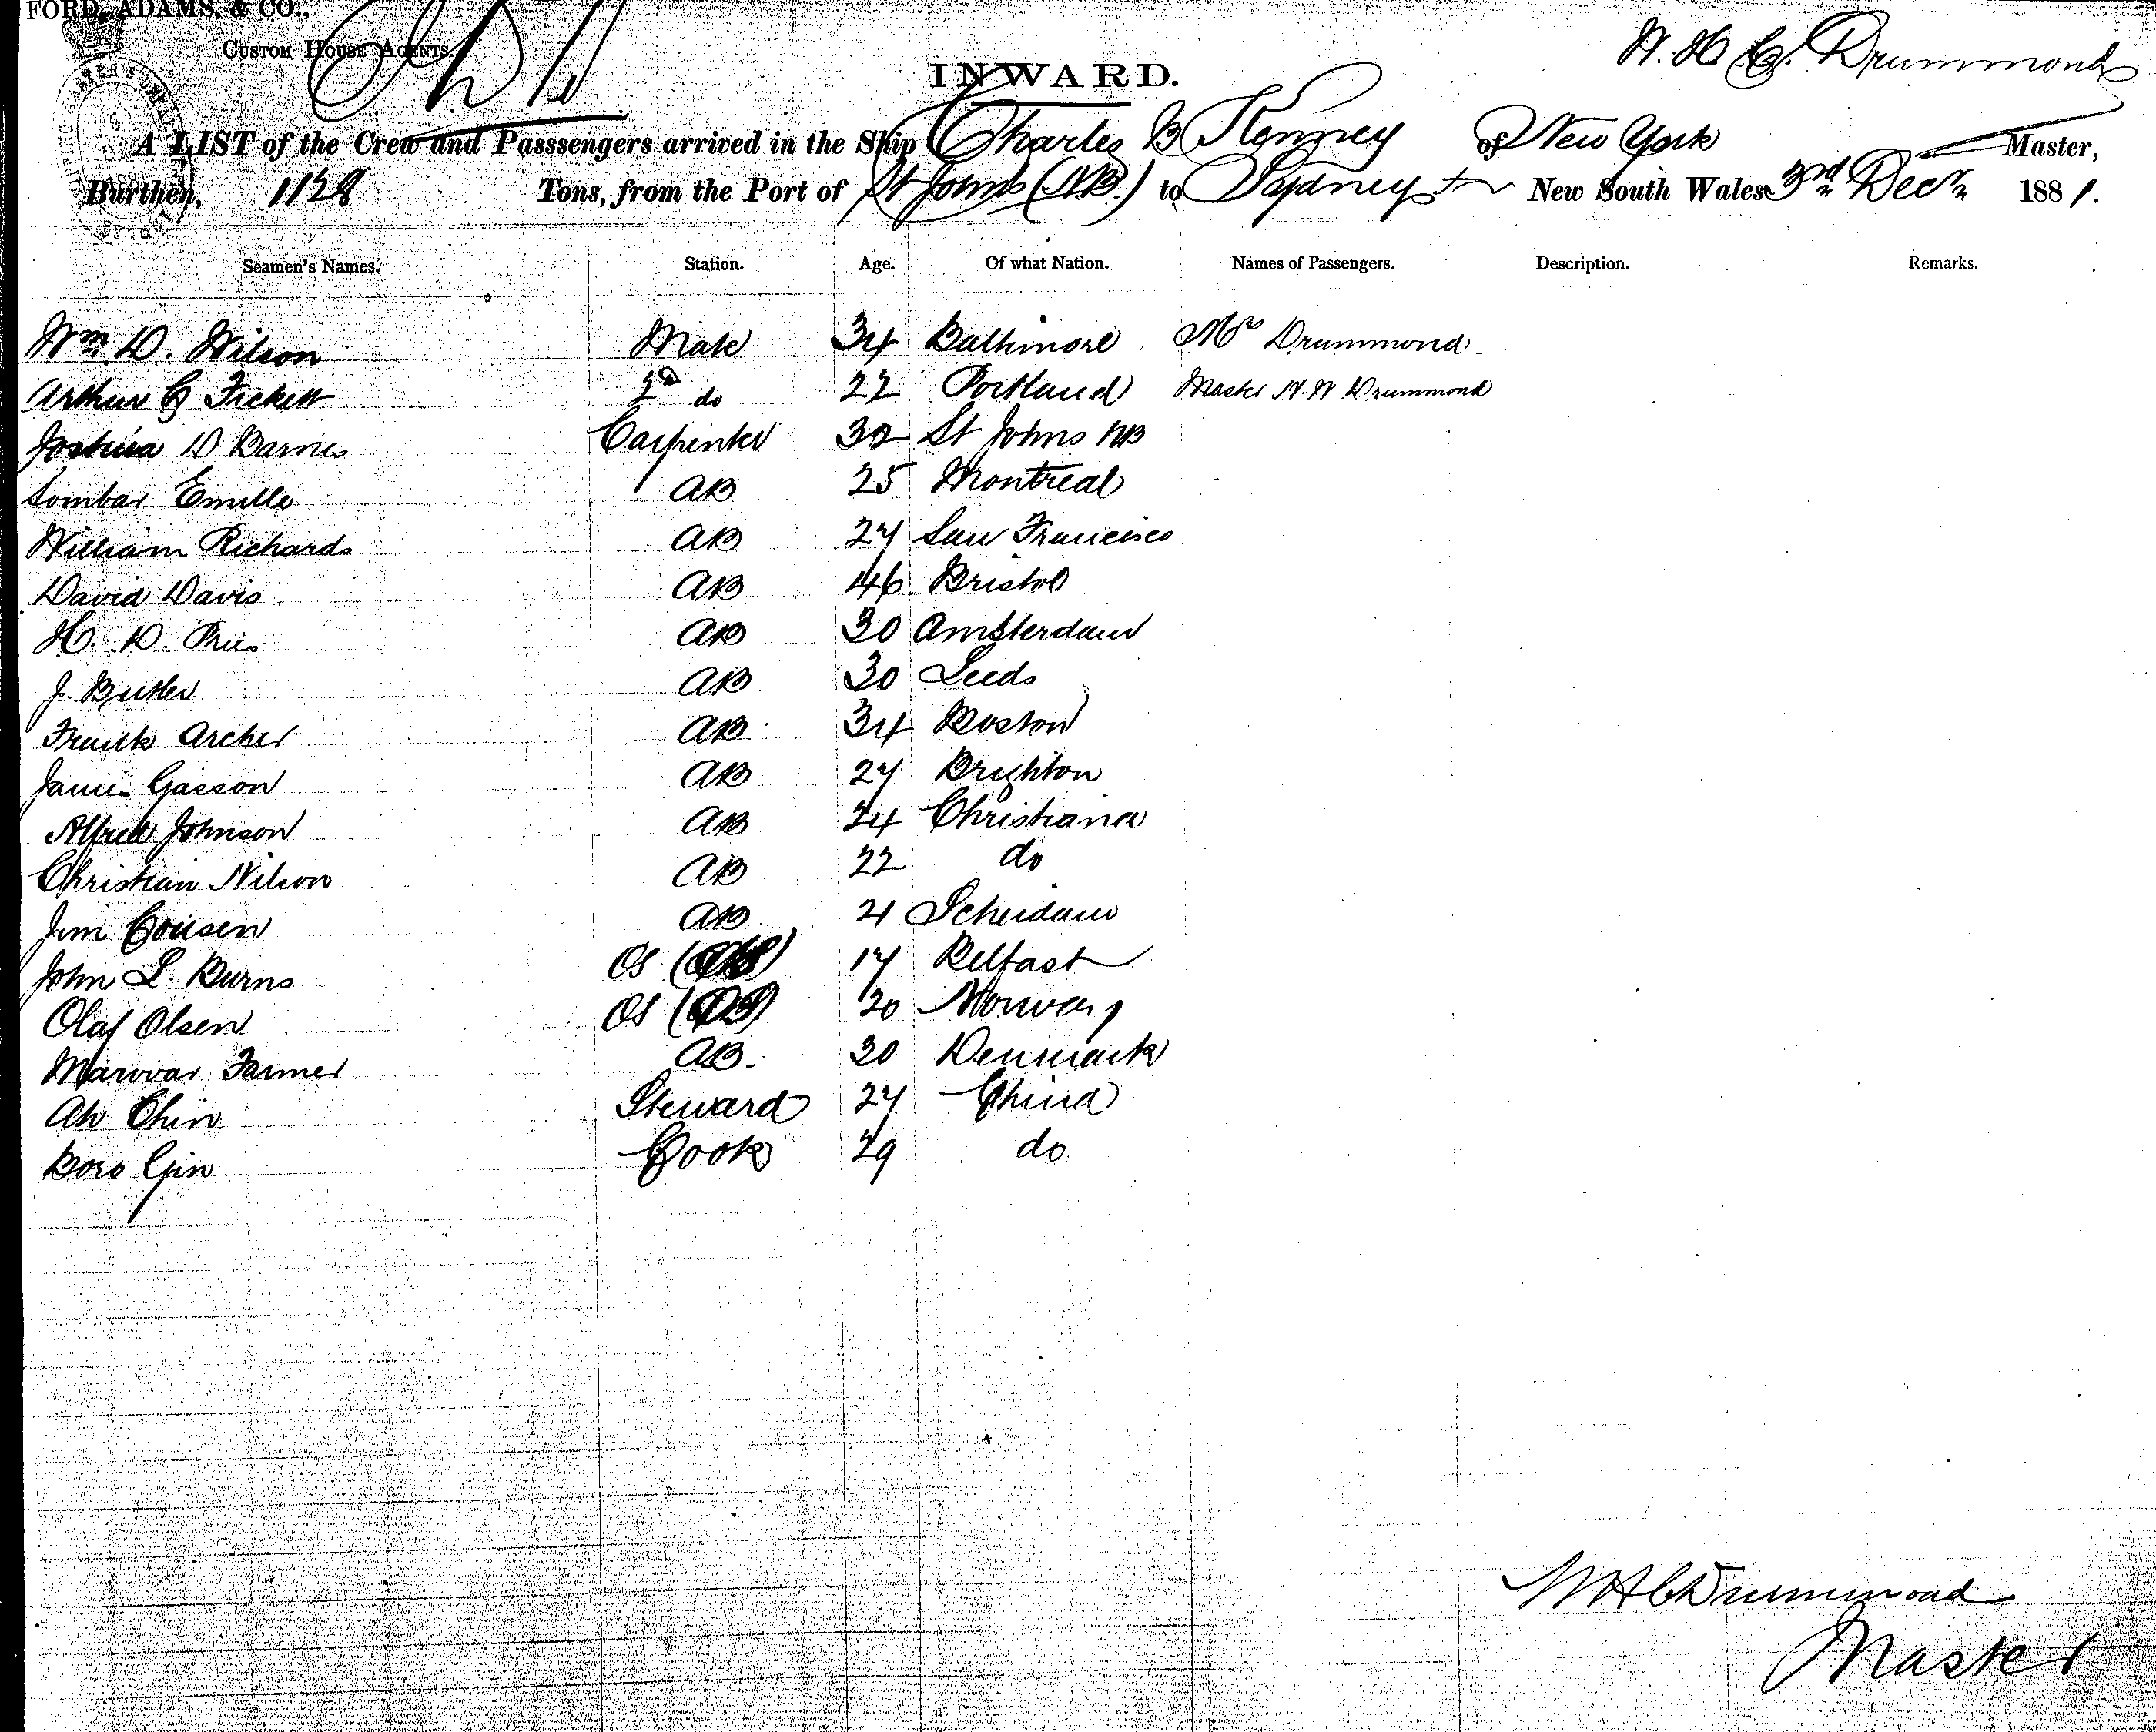 FORD, ADAMS, & CO.,
CUSTOM HOUSE AGENTS.
INWARD.
W. H. C. Drummond
A LIST of the Crew and Passsengers arrived in the Ship Charles B Kenney of New York Master,
Burthen, 1128 Tons, from the Port of St Johns (N.B.) to Sydney New South Wales 3rd Decr 1881.
Seamen's Names. Station. Age. Of what Nation. Names of Passengers. Description. Remarks.
Wm D. Wilson Mate 34 Baltimore Mrs Drummond
Arthur C Fickett 2nd do 22 Portland Master W. W Drummond
Joshua D Barnes Carpenter 32 St Johns NB
Lombar Emille AB 25 Montreal
William Richards AB 27 San Francisco
David Davis AB 46 Bristol
H. D. Pries AB 30 Amsterdam
J. Butler AB 30 Leeds
Frank Archer AB 34 Boston
James Gasson AB 27 Brighton
Alfred Johnson AB 24 Christiana
Christian Nilson AB 22 do
Jim Cousen AB 21 Scheidam
John L Burns OS 17 Belfast
Olaf Olsen OS 20 Norway
Farmer AB. 30 Denmark
Ah Chin Steward 27 China
Gin Cook 29 do
W H C Drummond
Master